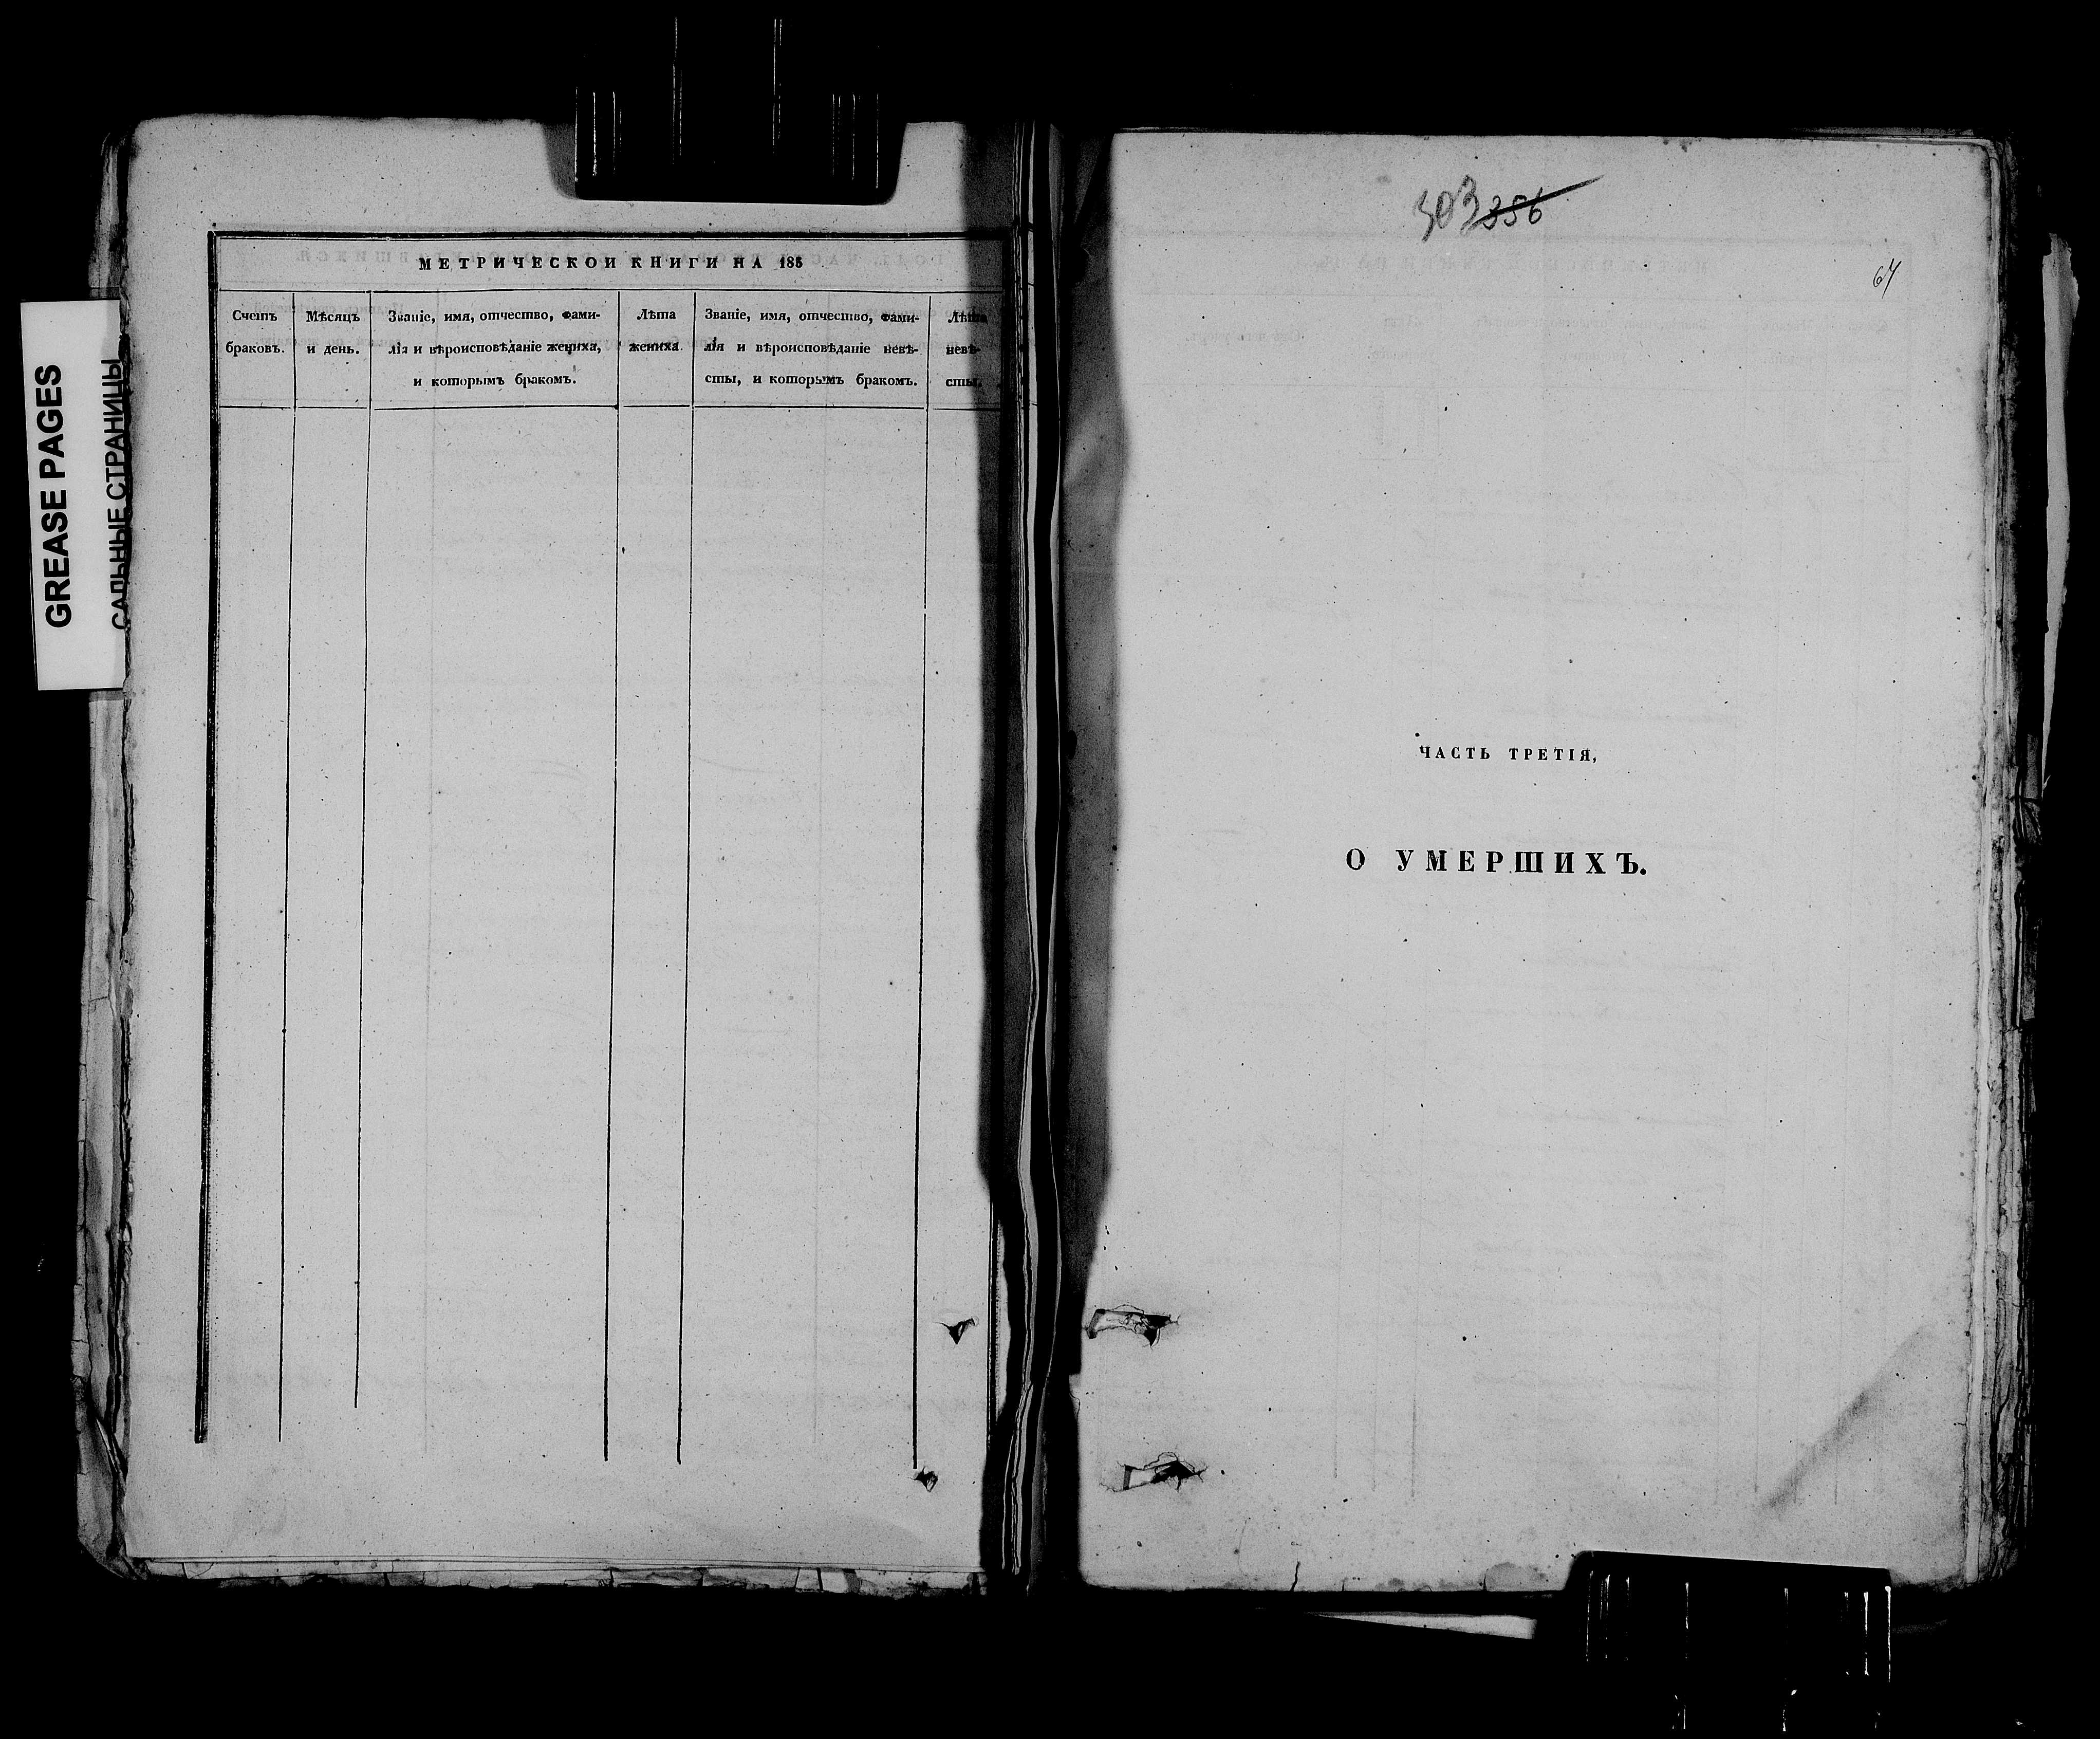 GREASE PAGES
САЛЬНЫЕ СТРАНИЦЫ
МЕТРИЧЕСКОЙ КНИГИ НА 185
Счетъ браковъ.
Мѣсяцъ и день.
Званіе, имя, отчество, фами-
лія и вѣроисповѣданіе жениха,
и которымъ бракомъ.
Лѣта
жениха.
Званіе, имя, отчество, фами-
лія и вѣроисповѣданіе невѣ-
сты, и которымъ бракомъ.
Лѣта
невѣ-
сты.
303 356
64
ЧАСТЬ ТРЕТІЯ,
О УМЕРШИХЪ.